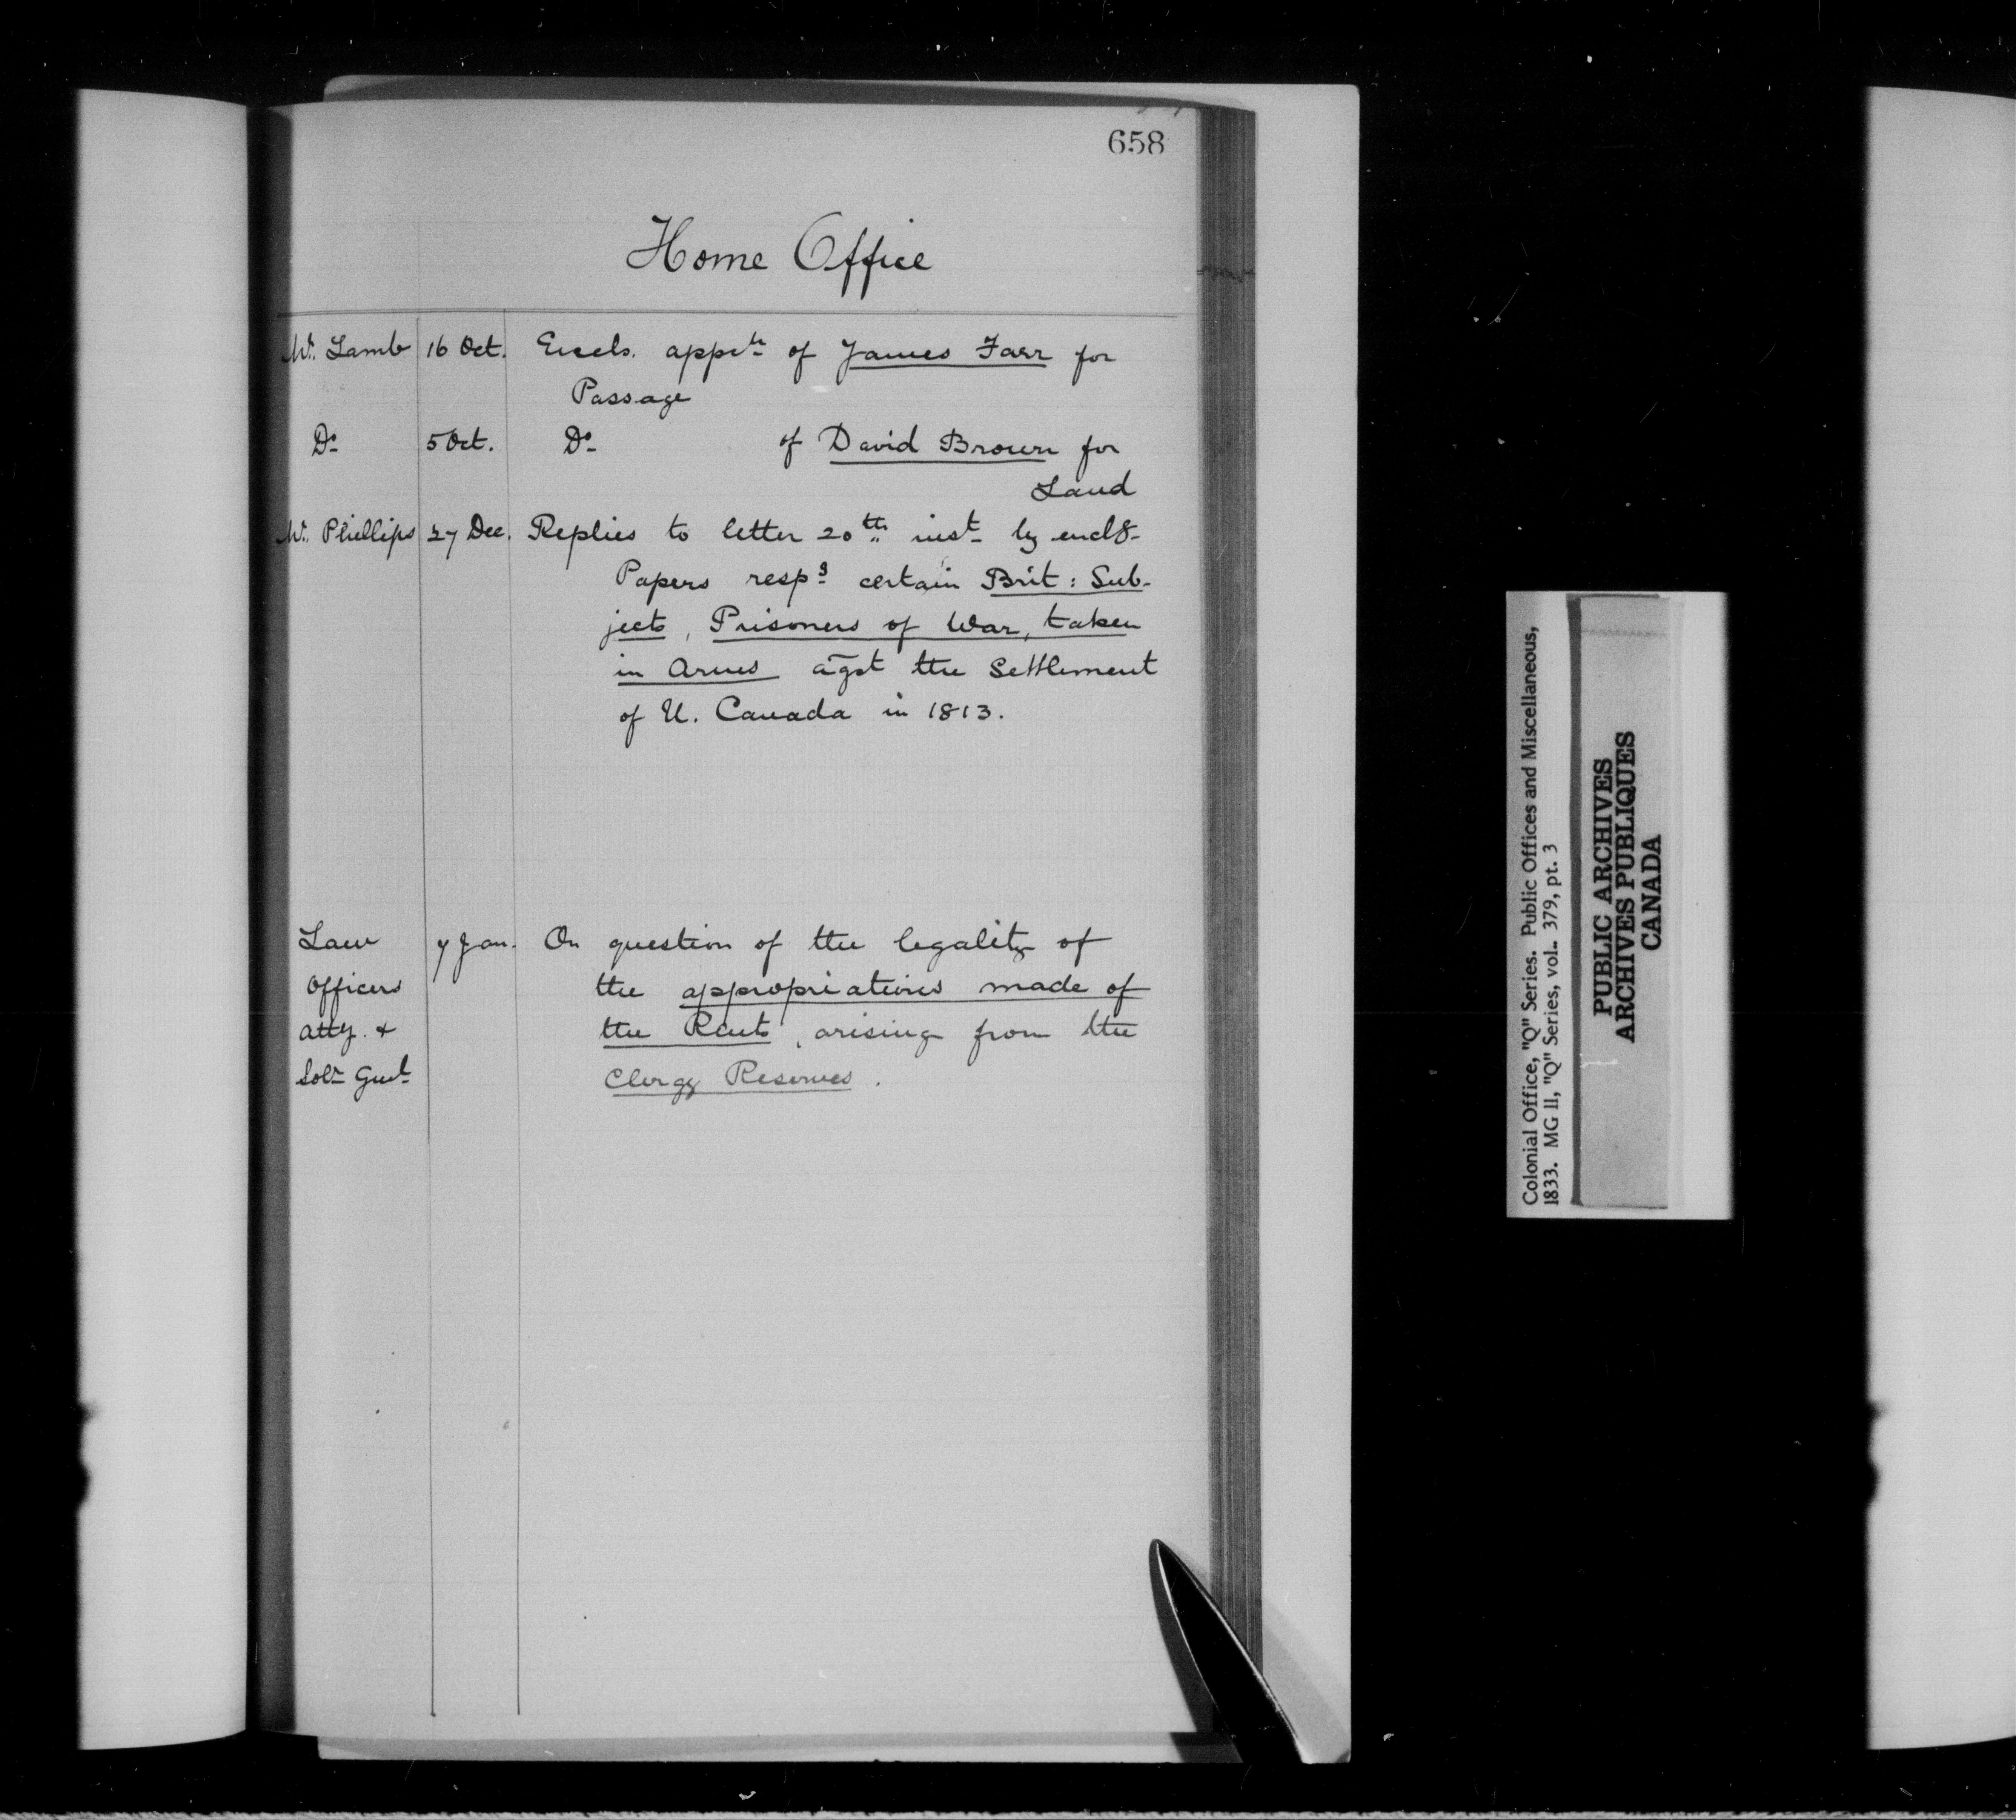 658
Home Office
Mr. Lamb 16 Oct. Encls. appctn of James Farr for
Passage
Do 5 Oct. Do of David Brown for
Land
Mr. Phillips 27 Dec. Replies to letter 20th inst by enclg
Papers respg certain Brit: Sub-
jects, Prisoners of War, taken
in arms agst the Settlement
of U. Canada in 1813.
Law 7 Jan. On question of the legality of
Officers the appropriations made of
atty. & the Rents, arising from the
Solr Genl Clergy Reserves.
Colonial Office, "Q" Series. Public Offices and Miscellaneous,
1833. MG 11, "Q" Series, vol. 379, pt. 3
PUBLIC ARCHIVES
ARCHIVES PUBLIQUES
CANADA